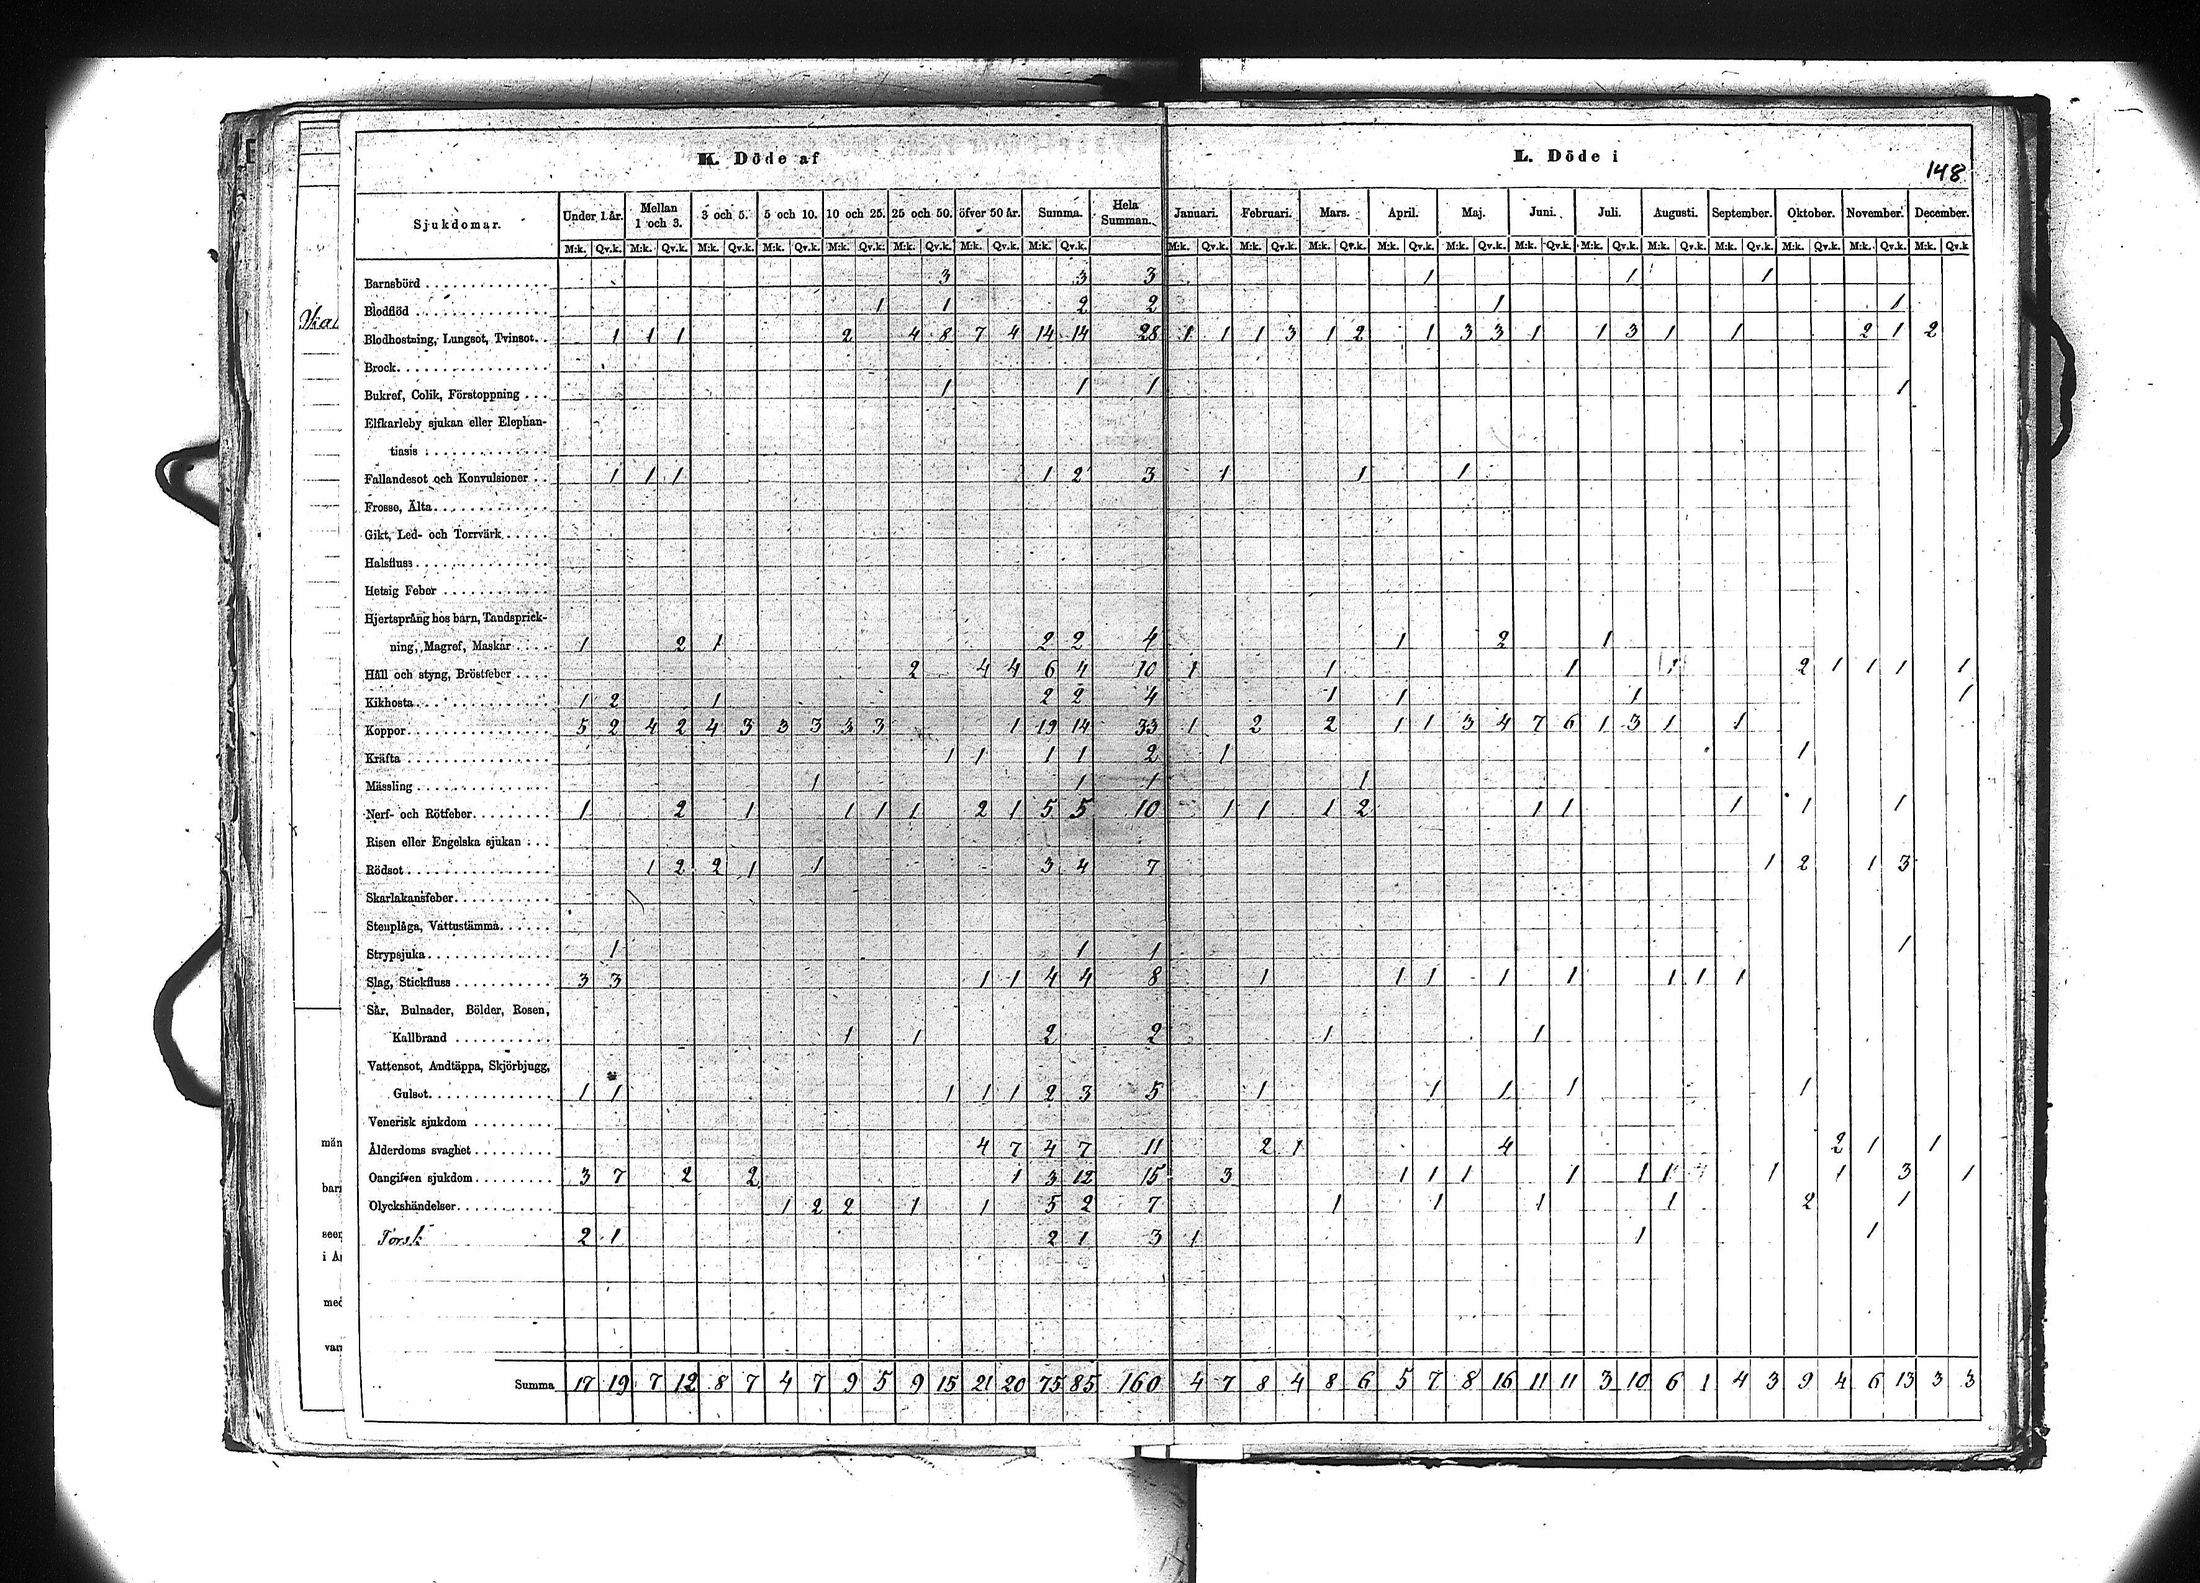 K. Döde af L. Döde i
148
Sjukdomar. Under 1 år. Mellan 1 och 3. 3 och 5. 5 och 10. 10 och 25. 25 och 50. öfver 50 år. Summa. Hela Summan. Januari. Februari. Mars. April. Maj. Juni. Juli. Augusti. September. Oktober. November. December.
M:k. Qv.k. M:k. Qv.k. M:k. Qv.k. M:k. Qv.k. M:k. Qv.k. M:k. Qv.k. M:k. Qv.k. M:k. Qv.k. M:k. Qv.k. M:k. Qv.k. M:k. Qv.k. M:k. Qv.k. M:k. Qv.k. M:k. Qv.k. M:k. Qv.k. M:k. Qv.k. M:k. Qv.k. M:k. Qv.k. M:k. Qv.k. M:k. Qv.k
Barnsbörd 3 3 3 1 1 1
Blodflöd 1 1 2 2 1 1
Blodhostning, Lungsot, Tvinsot. 1 1 1 2 4 8 7 4 14 14 28 1 1 1 3 1 2 1 3 3 1 1 3 1 1 2 1 2
Brock
Bukref, Colik, Förstoppning 1 1 1 1
Elfkarleby sjukan eller Elephan-
tiasis
Fallandesot och Konvulsioner 1 1 1 1 2 3 1 1 1
Frossa, Älta
Gikt, Led- och Torrvärk
Halsfluss
Hetsig Feber
Hjertsprång hos barn, Tandsprick-
ning, Magref, Maskar 1 2 1 2 2 4 1 2 1
Håll och styng, Bröstfeber 2 4 4 6 4 10 1 1 1 1 2 1 1 1 1
Kikhosta 1 2 1 2 2 4 1 1 1 1
Koppor 5 2 4 2 4 3 3 3 3 3 1 19 14 33 1 2 2 1 1 3 4 7 6 1 3 1 1
Kräfta 1 1 1 1 2 1 1
Mässling 1 1 1 1
Nerf- och Rötfeber 1 2 1 1 1 1 2 1 5 5 10 1 1 1 2 1 1 1 1 1
Risen eller Engelska sjukan
Rödsot 1 2 2 1 1 3 4 7 1 2 1 3
Skarlakansfeber
Stenplåga, Vattustämma
Strypsjuka 1 1 1 1
Slag, Stickfluss 3 3 1 1 4 4 8 1 1 1 1 1 1 1 1
Sår, Bulnader, Bölder, Rosen,
Kallbrand 1 1 2 2 1 1
Vattensot, Andtäppa, Skjörbjugg,
Gulsot 1 1 1 1 1 2 3 5 1 1 1 1 1
Venerisk sjukdom
Ålderdoms svaghet 4 7 4 7 11 2 1 4 2 1 1
Oangifven sjukdom 3 7 2 2 1 3 12 15 3 1 1 1 1 1 1 1 1 3 1
Olyckshändelser 1 2 2 1 1 5 2 7 1 1 1 1 2 1
Torsk 2 1 2 1 3 1 1 1
Summa 17 19 7 12 8 7 4 7 9 5 9 15 21 20 75 85 160 4 7 8 4 8 6 5 7 8 16 11 11 3 10 6 1 4 3 9 4 6 13 3 3